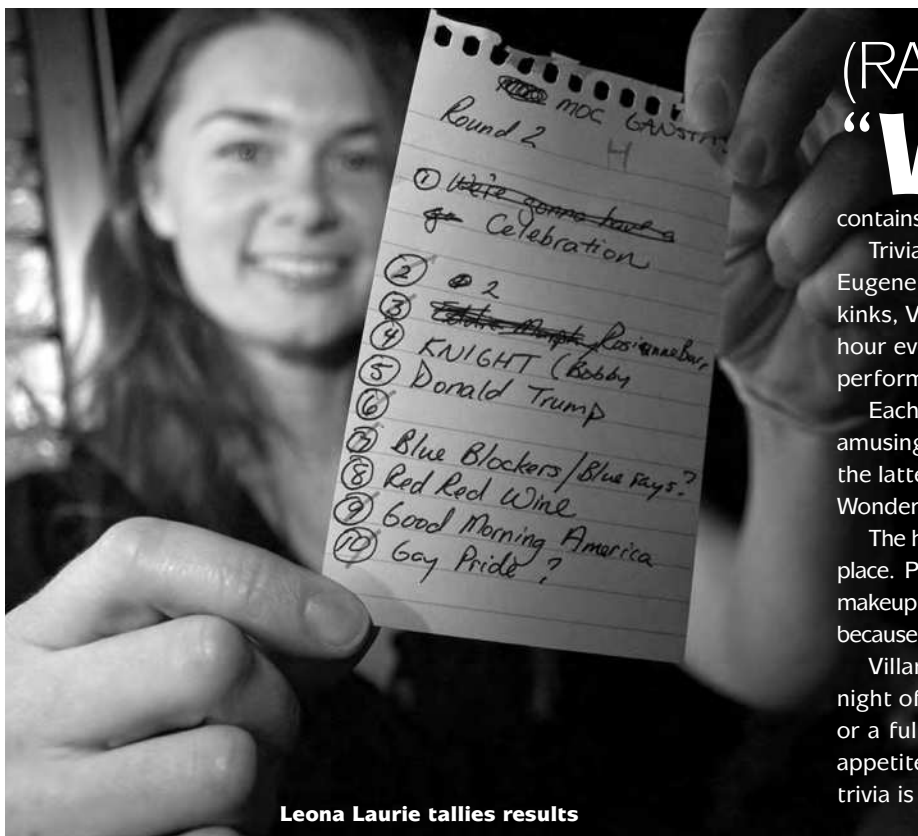 MOC GANSTAS
Round 2 H
① We're gonna have a
Celebration
② 2
③ Eddie Murph Roseanne Barr,
④ KNIGHT (Bobby
⑤ Donald Trump
⑥
⑦ Blue Blockers/Blue rays?
⑧ Red Red Wine
⑨ Good Morning America
⑩ Gay Pride ?
Leona Laurie tallies results
(RA
"W
contains
Trivia
Eugene
kinks, V
hour ev
perform
Each
amusing
the latte
Wonder
The h
place. P
makeup
because
Villar
night of
or a ful
appetite
trivia is